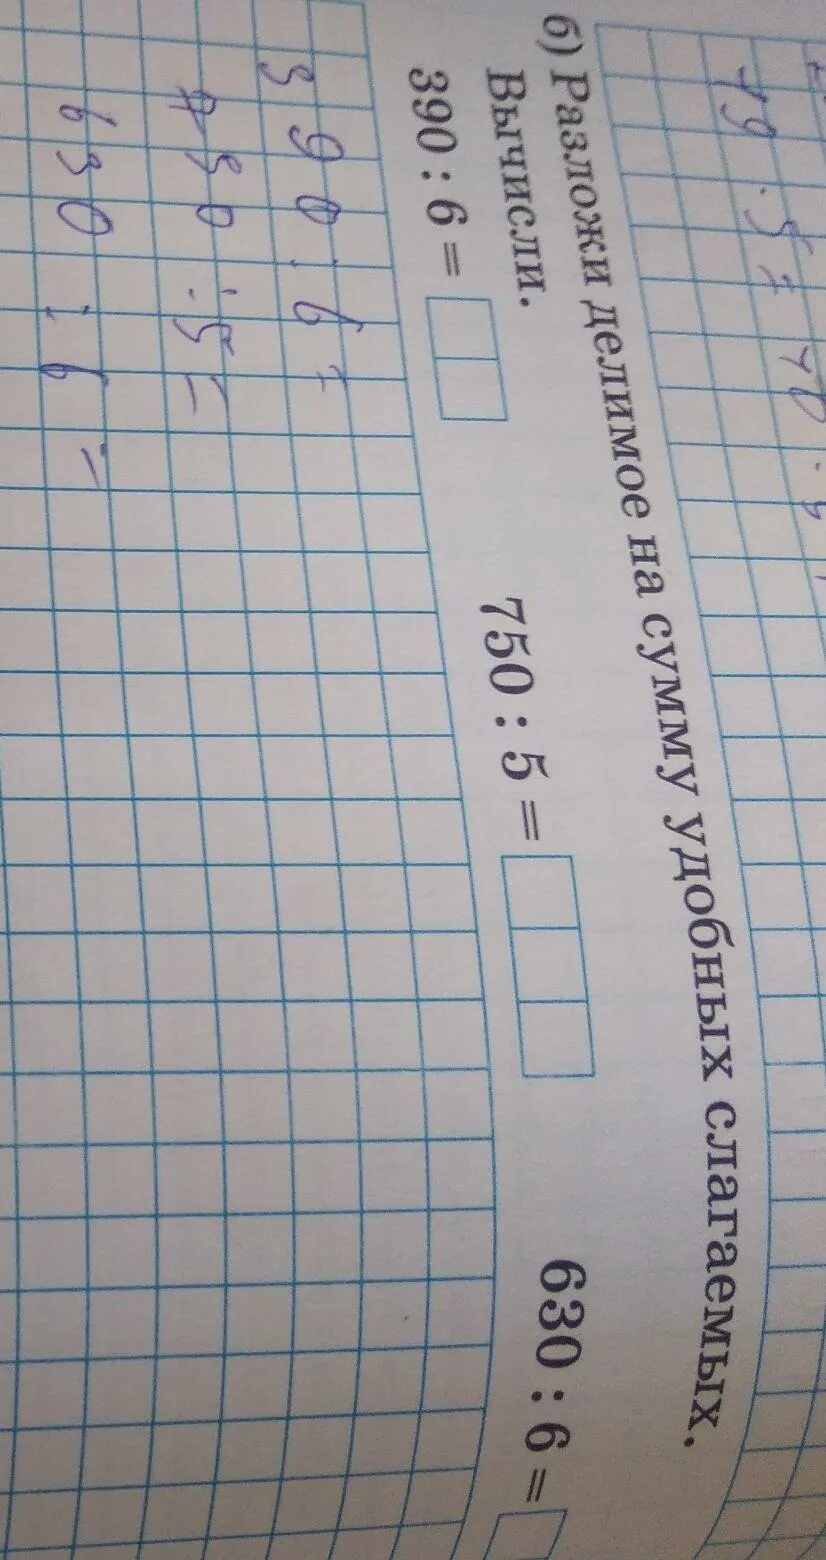 79 · 5 = 70 · 5
б) Разложи делимое на сумму удобных слагаемых.
Вычисли.
390 : 6 =
750 : 5 =
630 : 6 =
390 : 6 =
750 : 5 =
630 : 6 =